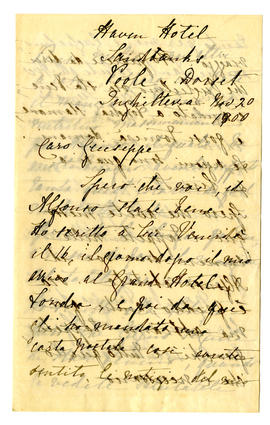 Haven Hotel
Sandbanks
Poole, Dorset
Inghilterra Nov 20
1900
Caro Giuseppe
Spero che voi ed
Alfonso state bene
Ho scritto a
il 14, il giorno dopo il mio
arrivo al Grand Hotel
Londra, e poi da qui
ho mandato una
carta postale così
sentito le notizie del mio